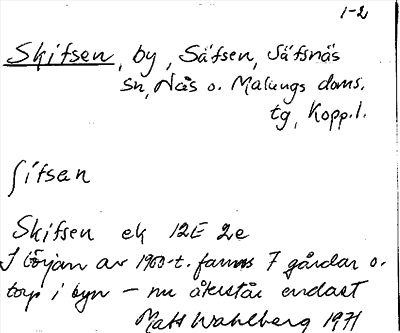 1-2
Skifsen, by, Säfsen, Säfsnäs
sn, Nås o. Malungs doms.
tg, Kopp.l.
ʃifsen
Skifsen ek 12E 2e
I början av 1900-t. fanns 7 gårdar o.
torp i byn – nu återstår endast
Mats Wahlberg 1971